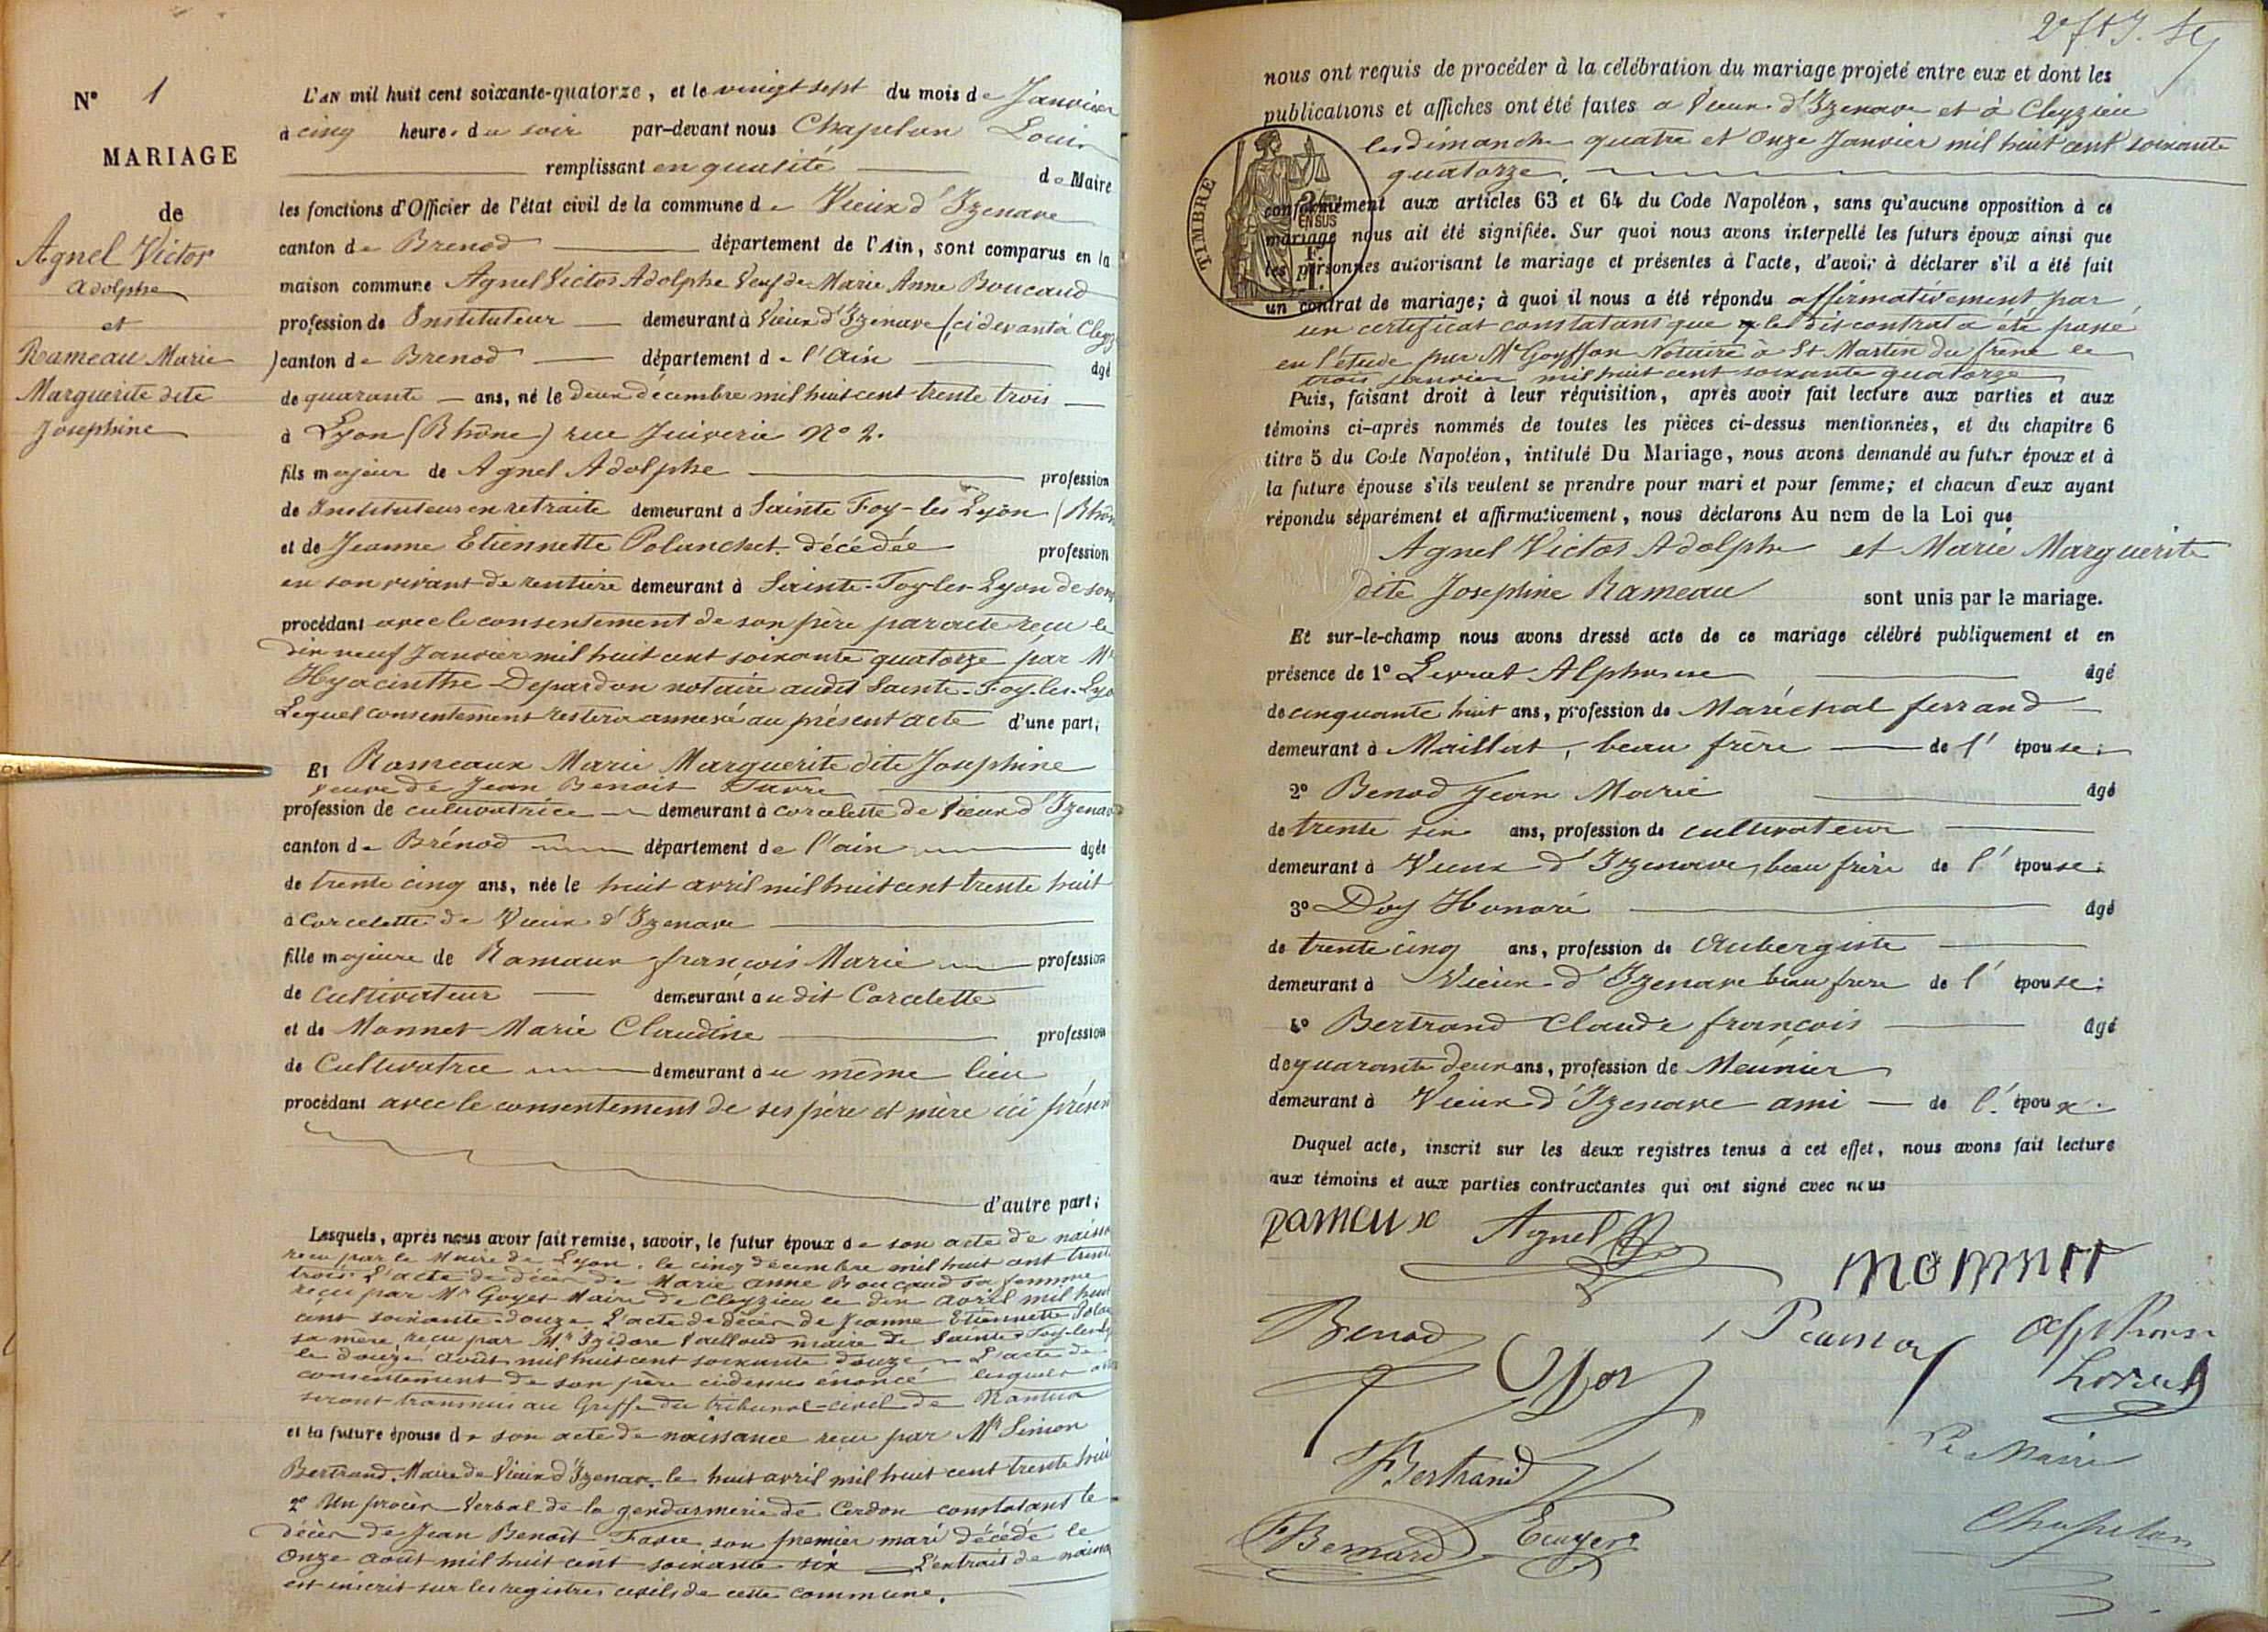 N° 1
MARIAGE
de
Agnel Victor
adolphe
et
Rameau Marie
Marguerite dite
Josephine
L'AN mil huit cent soixante-quatorze, et le vingt sept du mois de Janvier
à cinq heures du soir par-devant nous Chapelan Louis
remplissant en qualité de Maire
les fonctions d'Officier de l'état civil de la commune de Vieux d'Izenave
canton de Brenod département de l'Ain, sont comparus en la
maison commune Agnel Victor Adolphe Veuf de Marie Anne Boucaud
profession de Instituteur demeurant à Vieux d'Izenave (ci devant à Cleyz
) canton de Brenod département de l'Ain âgé
de quarante ans, né le deux décembre mil huit cent trente trois
à Lyon (Rhône) rue Juiverie N° 2.
fils majeur de Agnel Adolphe profession
de Instituteur en retraite demeurant à Sainte Foy-les Lyon (Rhôn
et de Jeanne Etiennette Polanchet décédée profession
en son vivant de rentière demeurant à Sainte-Foy-les-Lyon de son
procédant avec le consentement de son père par acte reçu le
dix neuf Janvier mil huit cent soixante quatorze par Mr
Hyacinthe Depardon notaire audit Sainte-Foy-les-Lyo
Lequel consentement restera annexé au présent acte d'une part;
Et Rameaux Marie Marguerite dite Josephine
veuve de Jean Benoit Favre
profession de cultivatrice demeurant à corcelette de Vieux d'Izenav
canton de Brénod département de l'ain âgée
de trente cinq ans, née le huit avril mil huit cent trente huit
à Corcelette de Vieux d'Izenave
fille majeure de Ramaux françois Marie profession
de Cultivateur demeurant audit Corcelette
et de Monnet Marie Claudine profession
de Cultivatrice demeurant au même lieu
procédant avec le consentement de ses père et mère ici présen
d'autre part;
Lesquels, après nous avoir fait remise, savoir, le futur époux de son acte de naissa
reçu par le Maire de Lyon, le cinq décembre mil huit cent trente
trois. L'acte de décès de Marie anne Boucaud sa femme
reçu par Mr Goyet Maire de Cleyzieu le dix avril mil huit
cent soixante-douze L'acte de décès de Jeanne Etiennette Polan
sa mère reçu par Mr Izidore Vailloud maire de Sainte-Foy-les-Ly
le douze août mil huit cent soixante douze L'acte de
consentement de son père ci dessus énoncé lesquels
seront transmis au Greffe du tribunal civil de Nantua
et la future épouse de son acte de naissance reçu par Mr Simon
Bertrand, Maire de Vieux d'Izenave le huit avril mil huit cent trente huit
2° Un procès-Verbal de la gendarmerie de Cerdon constatant le
décès de Jean Benoit Favre son premier mari décédé le
Onze août mil huit cent soixante six L'extrait de naissa
est inscrit sur les registres civils de cette commune.
nous ont requis de procéder à la célébration du mariage projeté entre eux et dont les
publications et affiches ont été faites a Vieux d'Izenave et à Cleyzieu
les dimanche quatre et Onze Janvier mil huit cent soixante
quatorze.
TIMBRE
2/10 EN SUS
conformément aux articles 63 et 64 du Code Napoléon, sans qu'aucune opposition à ce
mariage nous ait été signifiée. Sur quoi nous avons interpellé les futurs époux ainsi que
les personnes autorisant le mariage et présentes à l'acte, d'avoir à déclarer s'il a été fait
un contrat de mariage; à quoi il nous a été répondu affirmativement par
un certificat constatant que le dis contrat a été passé
en l'étude par Me Goyffon Notaire à St Martin du frêne le
trois janvier mil huit cent soixante quatorze
Puis, faisant droit à leur réquisition, après avoir fait lecture aux parties et aux
témoins ci-après nommés de toutes les pièces ci-dessus mentionnées, et du chapitre 6
titre 5 du Code Napoléon, intitulé Du Mariage, nous avons demandé au futur époux et à
la future épouse s'ils veulent se prendre pour mari et pour femme; et chacun d'eux ayant
répondu séparément et affirmativement, nous déclarons Au nom de la Loi que
Agnel Victor Adolphe et Marie Marguerite
dite Josephine Rameau sont unis par le mariage.
Et sur-le-champ nous avons dressé acte de ce mariage célébré publiquement et en
présence de 1° Levrat Alphonse âgé
de cinquante huit ans, profession de Maréchal ferrand
demeurant à Maillat, beau frère de l'épouse;
2° Benod Jean Marie âgé
de trente six ans, profession de cultivateur
demeurant à Vieux d'Izenave, beau frère de l'épouse;
3° Doy Honoré âgé
de trente cinq ans, profession de Aubergiste
demeurant à Vieux d'Izenave beau frere de l'épouse;
4° Bertrand Claude françois âgé
de quarante deux ans, profession de Meunier
demeurant à Vieux d'Izenave ami de l'époux.
Duquel acte, inscrit sur les deux registres tenus à cet effet, nous avons fait lecture
aux témoins et aux parties contractantes qui ont signé avec nous
Rameux Agnel
monnet
Benod Doy Alphonse
Levrat
Bertrand Le Maire
Bernard Ecuyer Chapelan